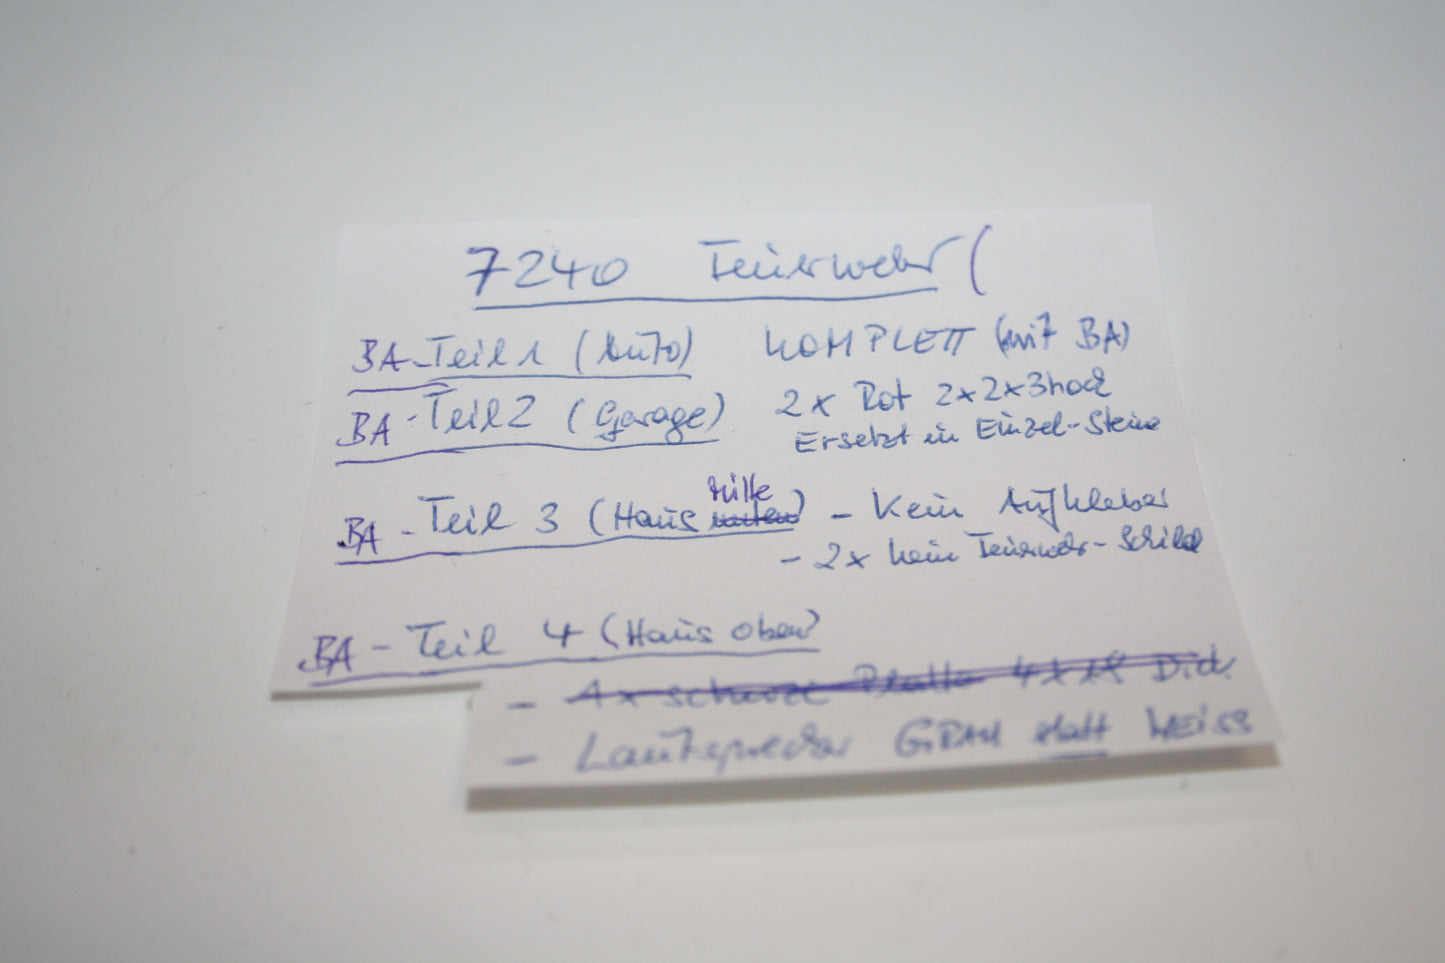 7240 Feuerwehr (
BA-Teil 1 (Auto) KOMPLETT (mit BA)
BA-Teil 2 (Garage) 2x Rot 2x2x3hoch
Ersetzt in Einzel-Steine
Mitte
BA-Teil 3 (Haus unten) - Kein Aufkleber
- 2x kein Feuerwehr-Schild
BA-Teil 4 (Haus oben)
- 1x schwarze Platte 4x18 Did.
- Lautsprecher GRAU statt WEISS